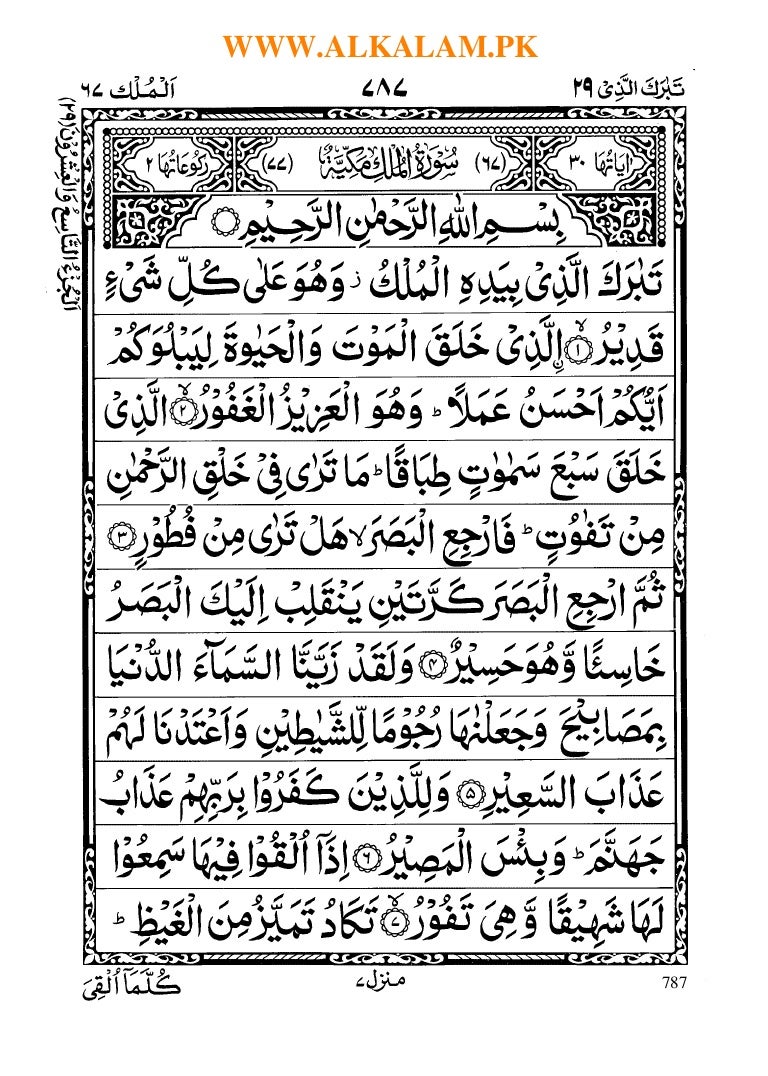 WWW.ALKALAM.PK
تَبٰرَكَ الَّذِیْ ۲۹
۷۸۷
اَلْمُلْك ۶۷
اٰیَاتُهَا ۳۰
(۶۷) سُوْرَةُ الْمُلْكِ مَكِّیَّةٌ (۷۷)
رُكُوْعَاتُهَا ۲
بِسْمِ اللّٰهِ الرَّحْمٰنِ الرَّحِیْمِ
تَبٰرَكَ الَّذِیْ بِیَدِهِ الْمُلْكُ ز وَهُوَ عَلٰى كُلِّ شَیْءٍ
قَدِیْرُ ۙ﴿۱﴾ اِ۟لَّذِیْ خَلَقَ الْمَوْتَ وَالْحَیٰوةَ لِیَبْلُوَكُمْ
اَیُّكُمْ اَحْسَنُ عَمَلًا ؕ وَهُوَ الْعَزِیْزُ الْغَفُوْرُ ۙ﴿۲﴾ الَّذِیْ
خَلَقَ سَبْعَ سَمٰوٰتٍ طِبَاقًا ؕ مَا تَرٰى فِیْ خَلْقِ الرَّحْمٰنِ
مِنْ تَفٰوُتٍ ؕ فَارْجِعِ الْبَصَرَ ۙ هَلْ تَرٰى مِنْ فُطُوْرٍ ﴿۳﴾
ثُمَّ ارْجِعِ الْبَصَرَ كَرَّتَیْنِ یَنْقَلِبْ اِلَیْكَ الْبَصَرُ
خَاسِئًا وَّهُوَ حَسِیْرٌ ﴿۴﴾ وَلَقَدْ زَیَّنَّا السَّمَآءَ الدُّنْیَا
بِمَصَابِیْحَ وَجَعَلْنٰهَا رُجُوْمًا لِّلشَّیٰطِیْنِ وَاَعْتَدْنَا لَهُمْ
عَذَابَ السَّعِیْرِ ﴿۵﴾ وَلِلَّذِیْنَ كَفَرُوْا بِرَبِّهِمْ عَذَابُ
جَهَنَّمَ ؕ وَبِئْسَ الْمَصِیْرُ ﴿۶﴾ اِذَاۤ اُلْقُوْا فِیْهَا سَمِعُوْا
لَهَا شَهِیْقًا وَّهِیَ تَفُوْرُ ۙ﴿۷﴾ تَكَادُ تَمَیَّزُ مِنَ الْغَیْظِ ؕ
اَلْجُزْءُ التَّاسِعُ وَالْعِشْرُوْنَ (۲۹)
787
منزل ۷
كُلَّمَاۤ اُلْقِیَ